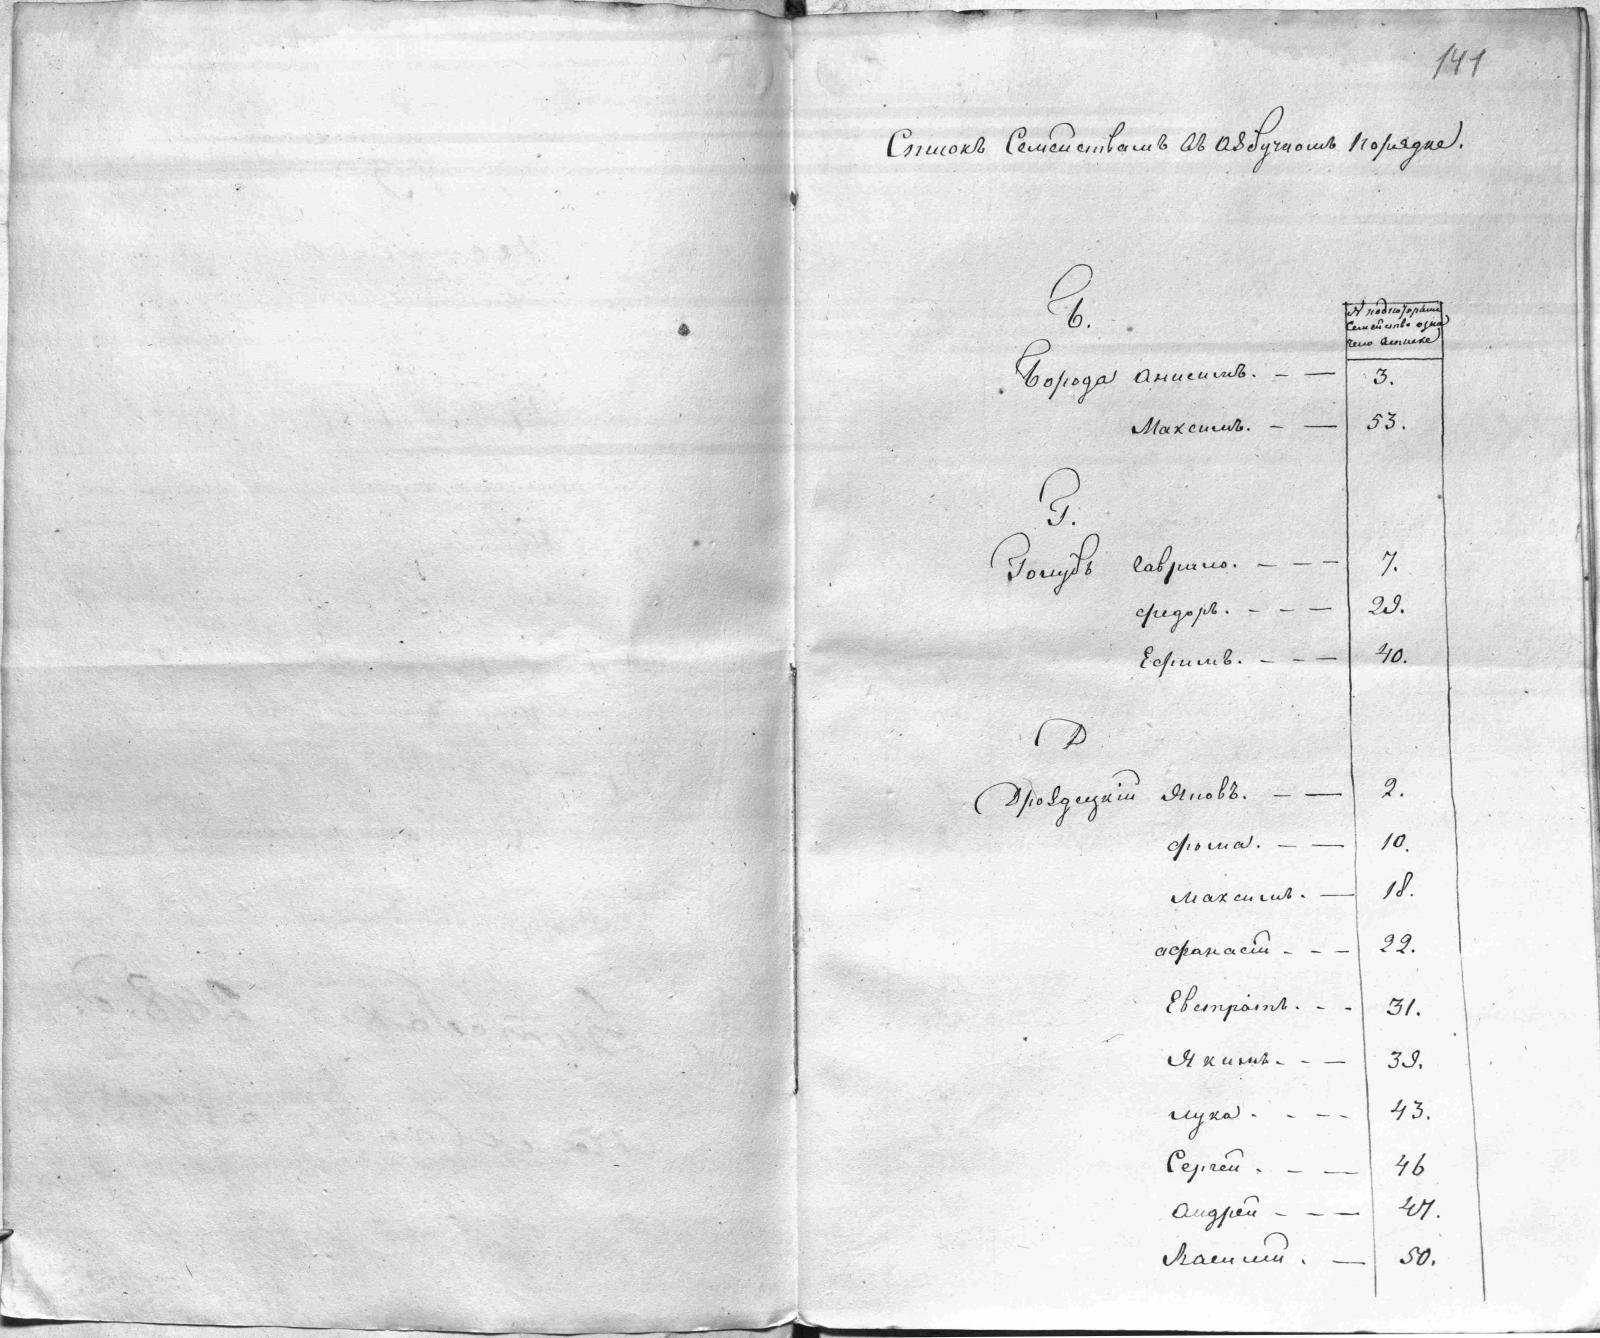 141
Списокъ Семействамъ въ азбучномъ порядке.
Б.
№ подкоторымъ
Семейство озна
чено списке
Борода анисимъ. - — 3.
Максимъ. - — 53.
Г.
Голубъ гаврило. - - — 7.
федоръ. - - — 29.
Ефимъ. - - — 40.
Д
Дроздецкій Яковъ. - — 2.
фома. - — 10.
максимъ. — 18.
афанасій - - - 22.
Евстратъ. - - 31.
Якимъ. - — 39.
лука. - - - 43.
Сергей. - — 46
андрей - - — 47.
Василій. — 50.